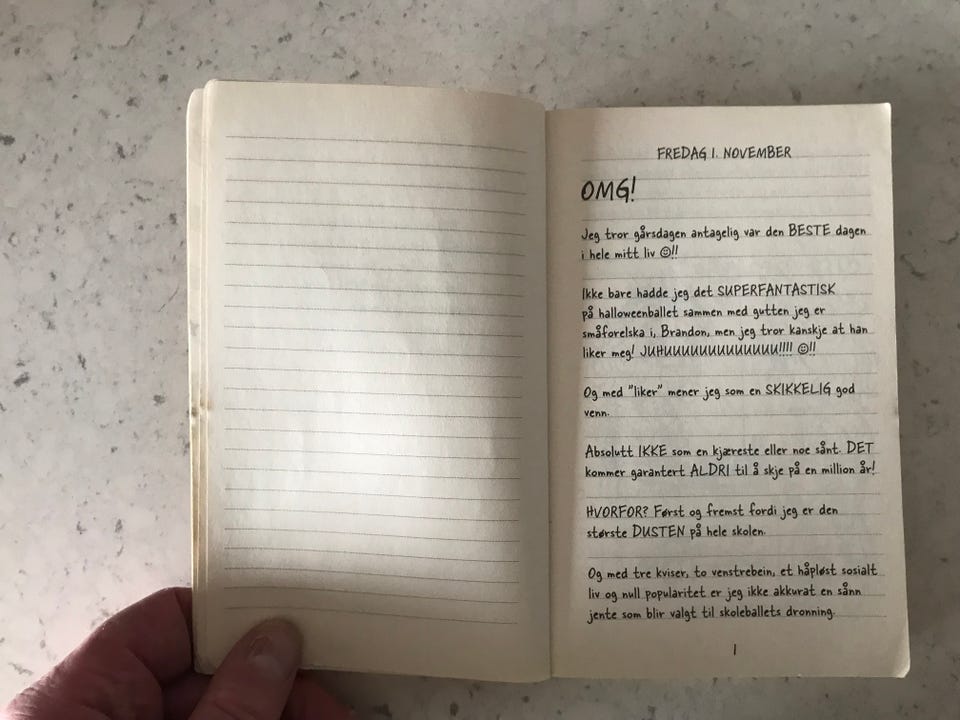 FREDAG 1. NOVEMBER
OMG!
Jeg tror gårsdagen antagelig var den BESTE dagen
i hele mitt liv ☺!!
Ikke bare hadde jeg det SUPERFANTASTISK
på halloweenballet sammen med gutten jeg er
småforelska i, Brandon, men jeg tror kanskje at han
liker meg! JUHUUUUUUUUUUUUU!!!! ☺!!
Og med "liker" mener jeg som en SKIKKELIG god
venn.
Absolutt IKKE som en kjæreste eller noe sånt. DET
kommer garantert ALDRI til å skje på en million år!
HVORFOR? Først og fremst fordi jeg er den
største DUSTEN på hele skolen.
Og med tre kviser, to venstrebein, et håpløst sosialt
liv og null popularitet er jeg ikke akkurat en sånn
jente som blir valgt til skoleballets dronning.
1